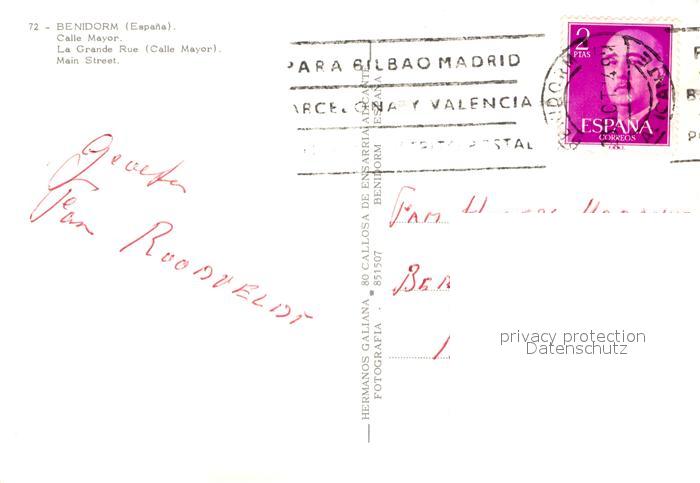 72 - BENIDORM (España).
Calle Mayor.
La Grande Rue (Calle Mayor).
Main Street.
PARA BILBAO MADRID
ARCELONA Y VALENCIA
POSTAL
2
PTAS
ESPAÑA
CORREOS
Fam
ROOSVELDT
BER
HERMANOS GALIANA - 80 CALLOSA DE ENSARRIA ALICANTE
FOTOGRAFIA . * 851507 BENIDORM ESPAÑA
privacy protection
Datenschutz